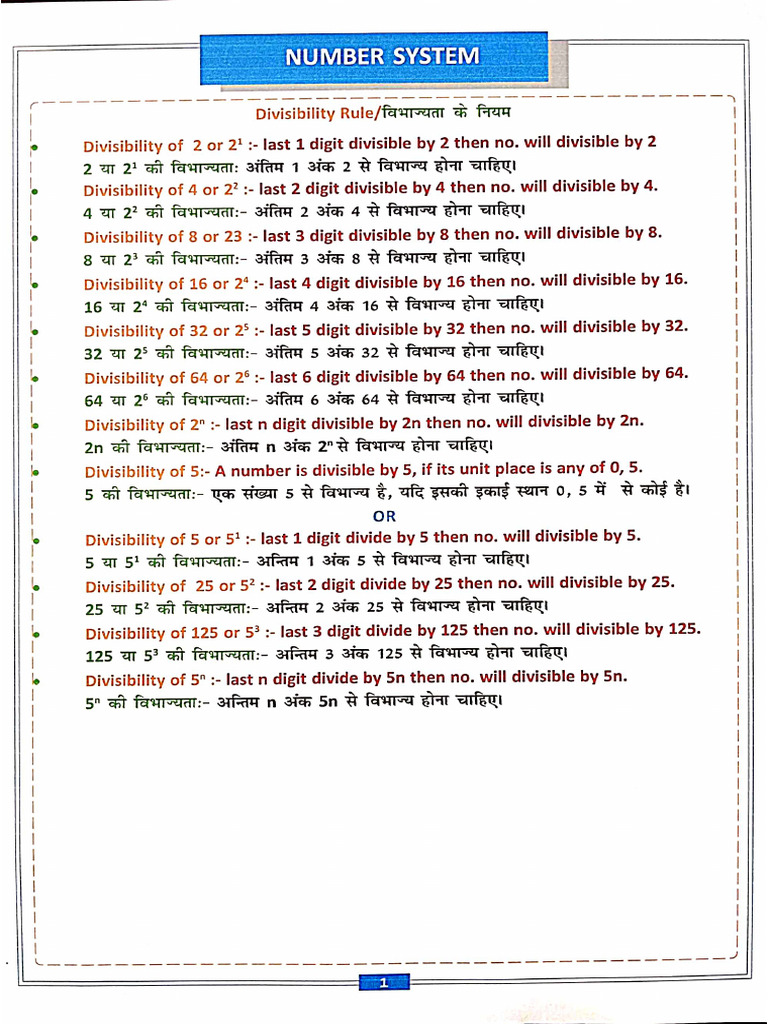 NUMBER SYSTEM
Divisibility Rule/विभाज्यता के नियम
• Divisibility of 2 or 2¹ :- last 1 digit divisible by 2 then no. will divisible by 2
2 या 2¹ की विभाज्यता: अंतिम 1 अंक 2 से विभाज्य होना चाहिए।
• Divisibility of 4 or 2² :- last 2 digit divisible by 4 then no. will divisible by 4.
4 या 2² की विभाज्यता:- अंतिम 2 अंक 4 से विभाज्य होना चाहिए।
• Divisibility of 8 or 23 :- last 3 digit divisible by 8 then no. will divisible by 8.
8 या 2³ की विभाज्यता:- अंतिम 3 अंक 8 से विभाज्य होना चाहिए।
• Divisibility of 16 or 2⁴ :- last 4 digit divisible by 16 then no. will divisible by 16.
16 या 2⁴ की विभाज्यता:- अंतिम 4 अंक 16 से विभाज्य होना चाहिए।
• Divisibility of 32 or 2⁵ :- last 5 digit divisible by 32 then no. will divisible by 32.
32 या 2⁵ की विभाज्यता:- अंतिम 5 अंक 32 से विभाज्य होना चाहिए।
• Divisibility of 64 or 2⁶ :- last 6 digit divisible by 64 then no. will divisible by 64.
64 या 2⁶ की विभाज्यता:- अंतिम 6 अंक 64 से विभाज्य होना चाहिए।
• Divisibility of 2ⁿ :- last n digit divisible by 2n then no. will divisible by 2n.
2n की विभाज्यता:- अंतिम n अंक 2ⁿ से विभाज्य होना चाहिए।
• Divisibility of 5:- A number is divisible by 5, if its unit place is any of 0, 5.
5 की विभाज्यता:- एक संख्या 5 से विभाज्य है, यदि इसकी इकाई स्थान 0, 5 में से कोई है।
OR
• Divisibility of 5 or 5¹ :- last 1 digit divide by 5 then no. will divisible by 5.
5 या 5¹ की विभाज्यता:- अन्तिम 1 अंक 5 से विभाज्य होना चाहिए।
• Divisibility of 25 or 5² :- last 2 digit divide by 25 then no. will divisible by 25.
25 या 5² की विभाज्यता:- अन्तिम 2 अंक 25 से विभाज्य होना चाहिए।
• Divisibility of 125 or 5³ :- last 3 digit divide by 125 then no. will divisible by 125.
125 या 5³ की विभाज्यता:- अन्तिम 3 अंक 125 से विभाज्य होना चाहिए।
• Divisibility of 5ⁿ :- last n digit divide by 5n then no. will divisible by 5n.
5ⁿ की विभाज्यता:- अन्तिम n अंक 5n से विभाज्य होना चाहिए।
1